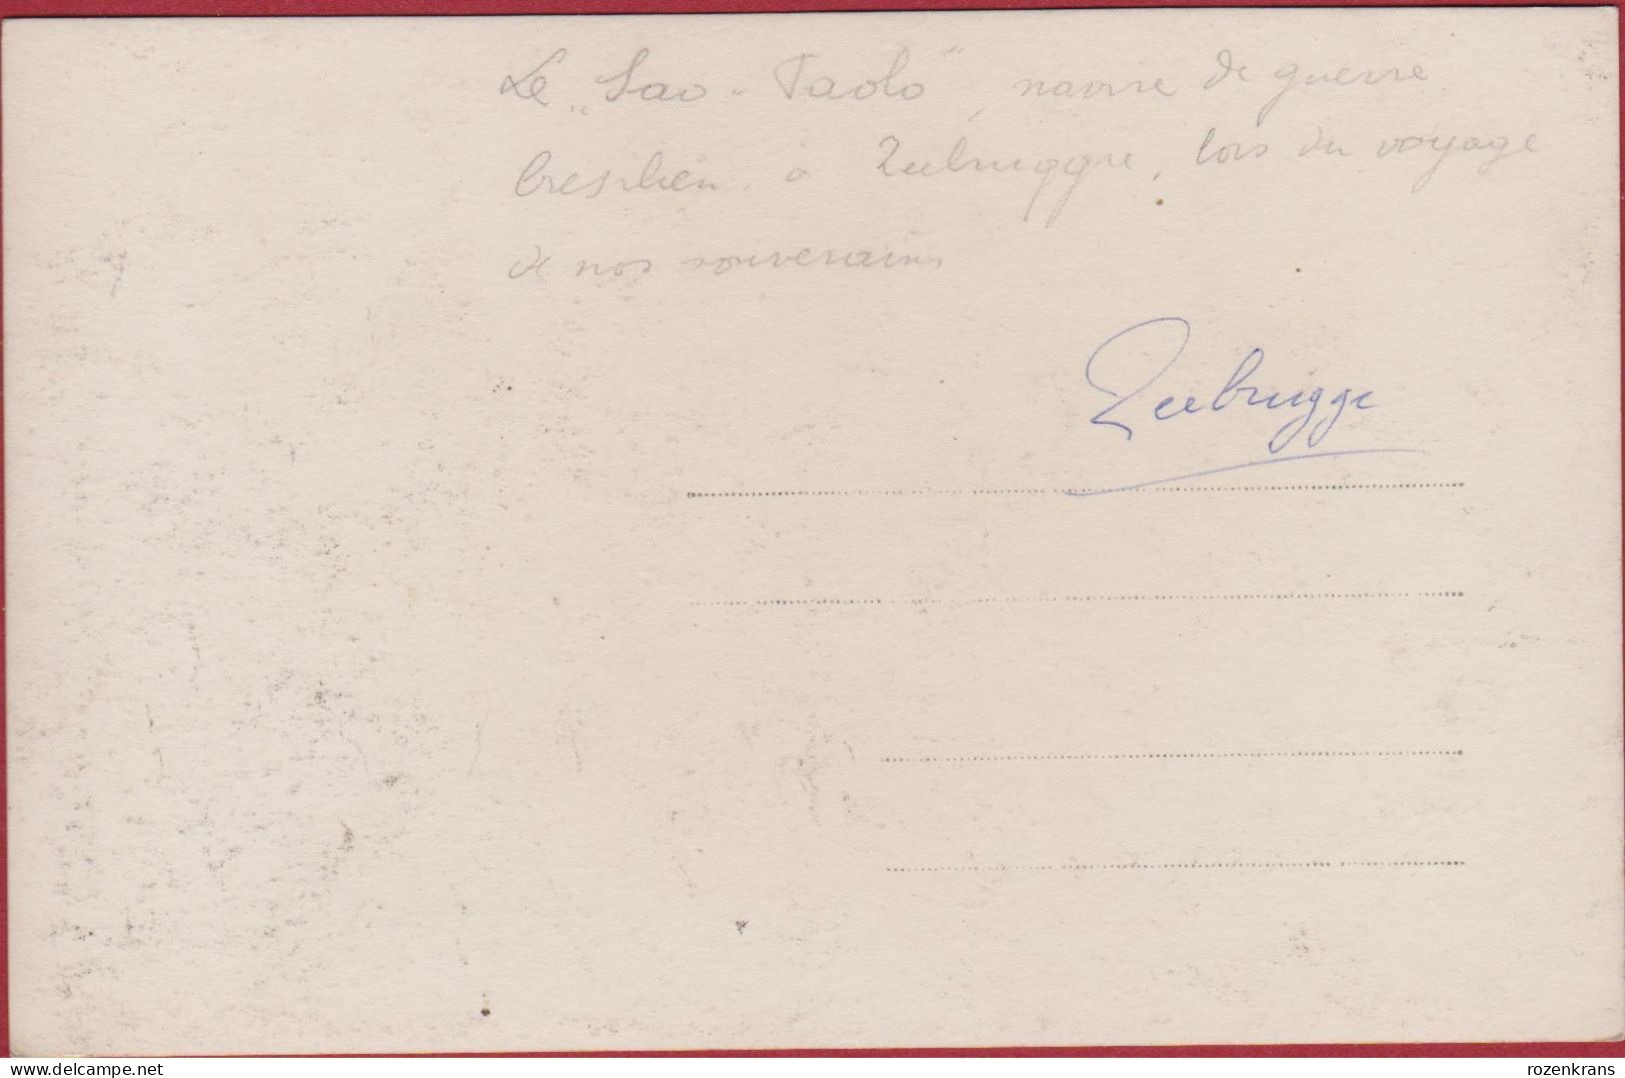 Le „Sao-Paolo", navire de guerre
bresilien à Zeebrugge, lors du voyage
de nos souverains
Zeebrugge
delcampe.net
rozenkrans